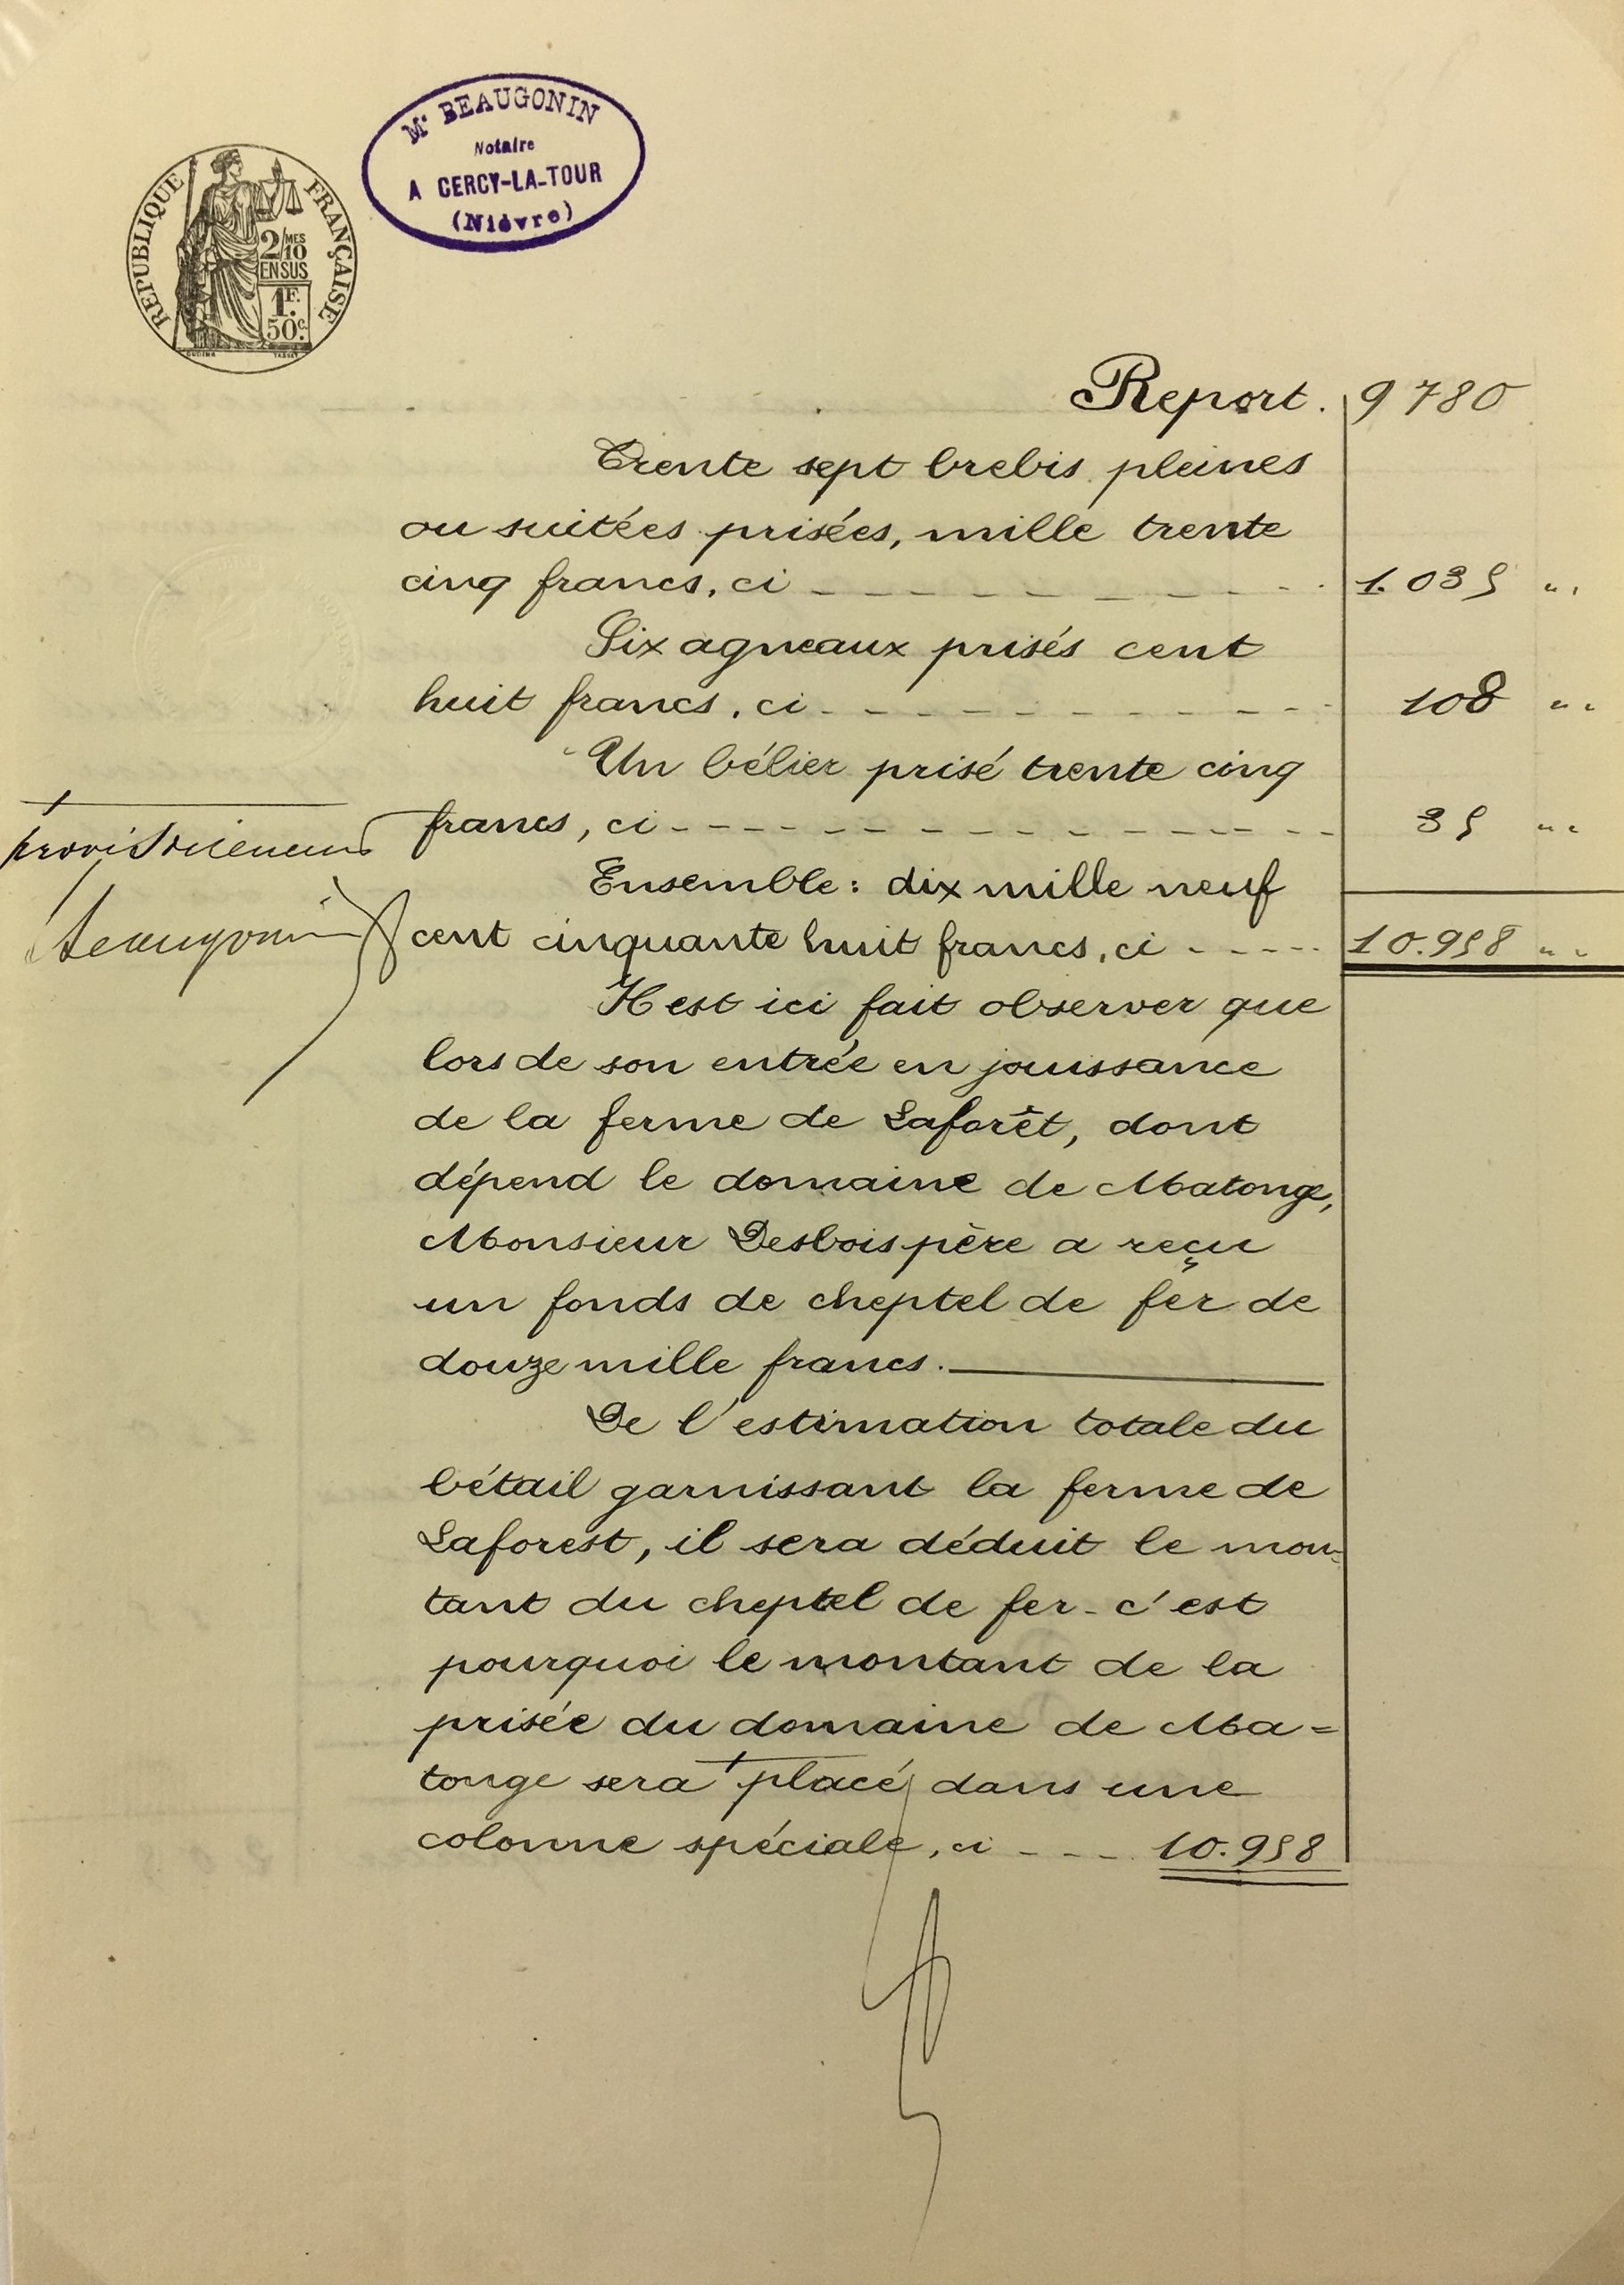 Me BEAUGONIN
Notaire
A CERCY-LA-TOUR
(Nièvre)
REPUBLIQUE FRANÇAISE
2/10 MES
EN SUS
1F.
50c.
OUDINÉ TASSET
Report. 9780
Trente sept brebis pleines
ou suitées prisées, mille trente
cinq francs, ci _ _ _ _ _ _ _ _ 1.035 " "
Six agneaux prisés cent
huit francs, ci - - - - - - - - - 108 " "
Un bélier prisé trente cinq
francs, ci - - - - - - - - - - - - 35 " "
Ensemble : dix mille neuf
cent cinquante huit francs, ci - - - - 10.958 " "
Il est ici fait observer que
lors de son entrée en jouissance
de la ferme de Laforêt, dont
dépend le domaine de Matonge,
Monsieur Desbois père a reçu
un fonds de cheptel de fer de
douze mille francs.
De l'estimation totale du
bétail garnissant la ferme de
Laforest, il sera déduit le mon=
tant du cheptel de fer - c'est
pourquoi le montant de la
prisée du domaine de Ma=
tonge sera + placé dans une
colonne spéciale, ci _ _ _ 10.958
+
provisoirement
Beaugonin